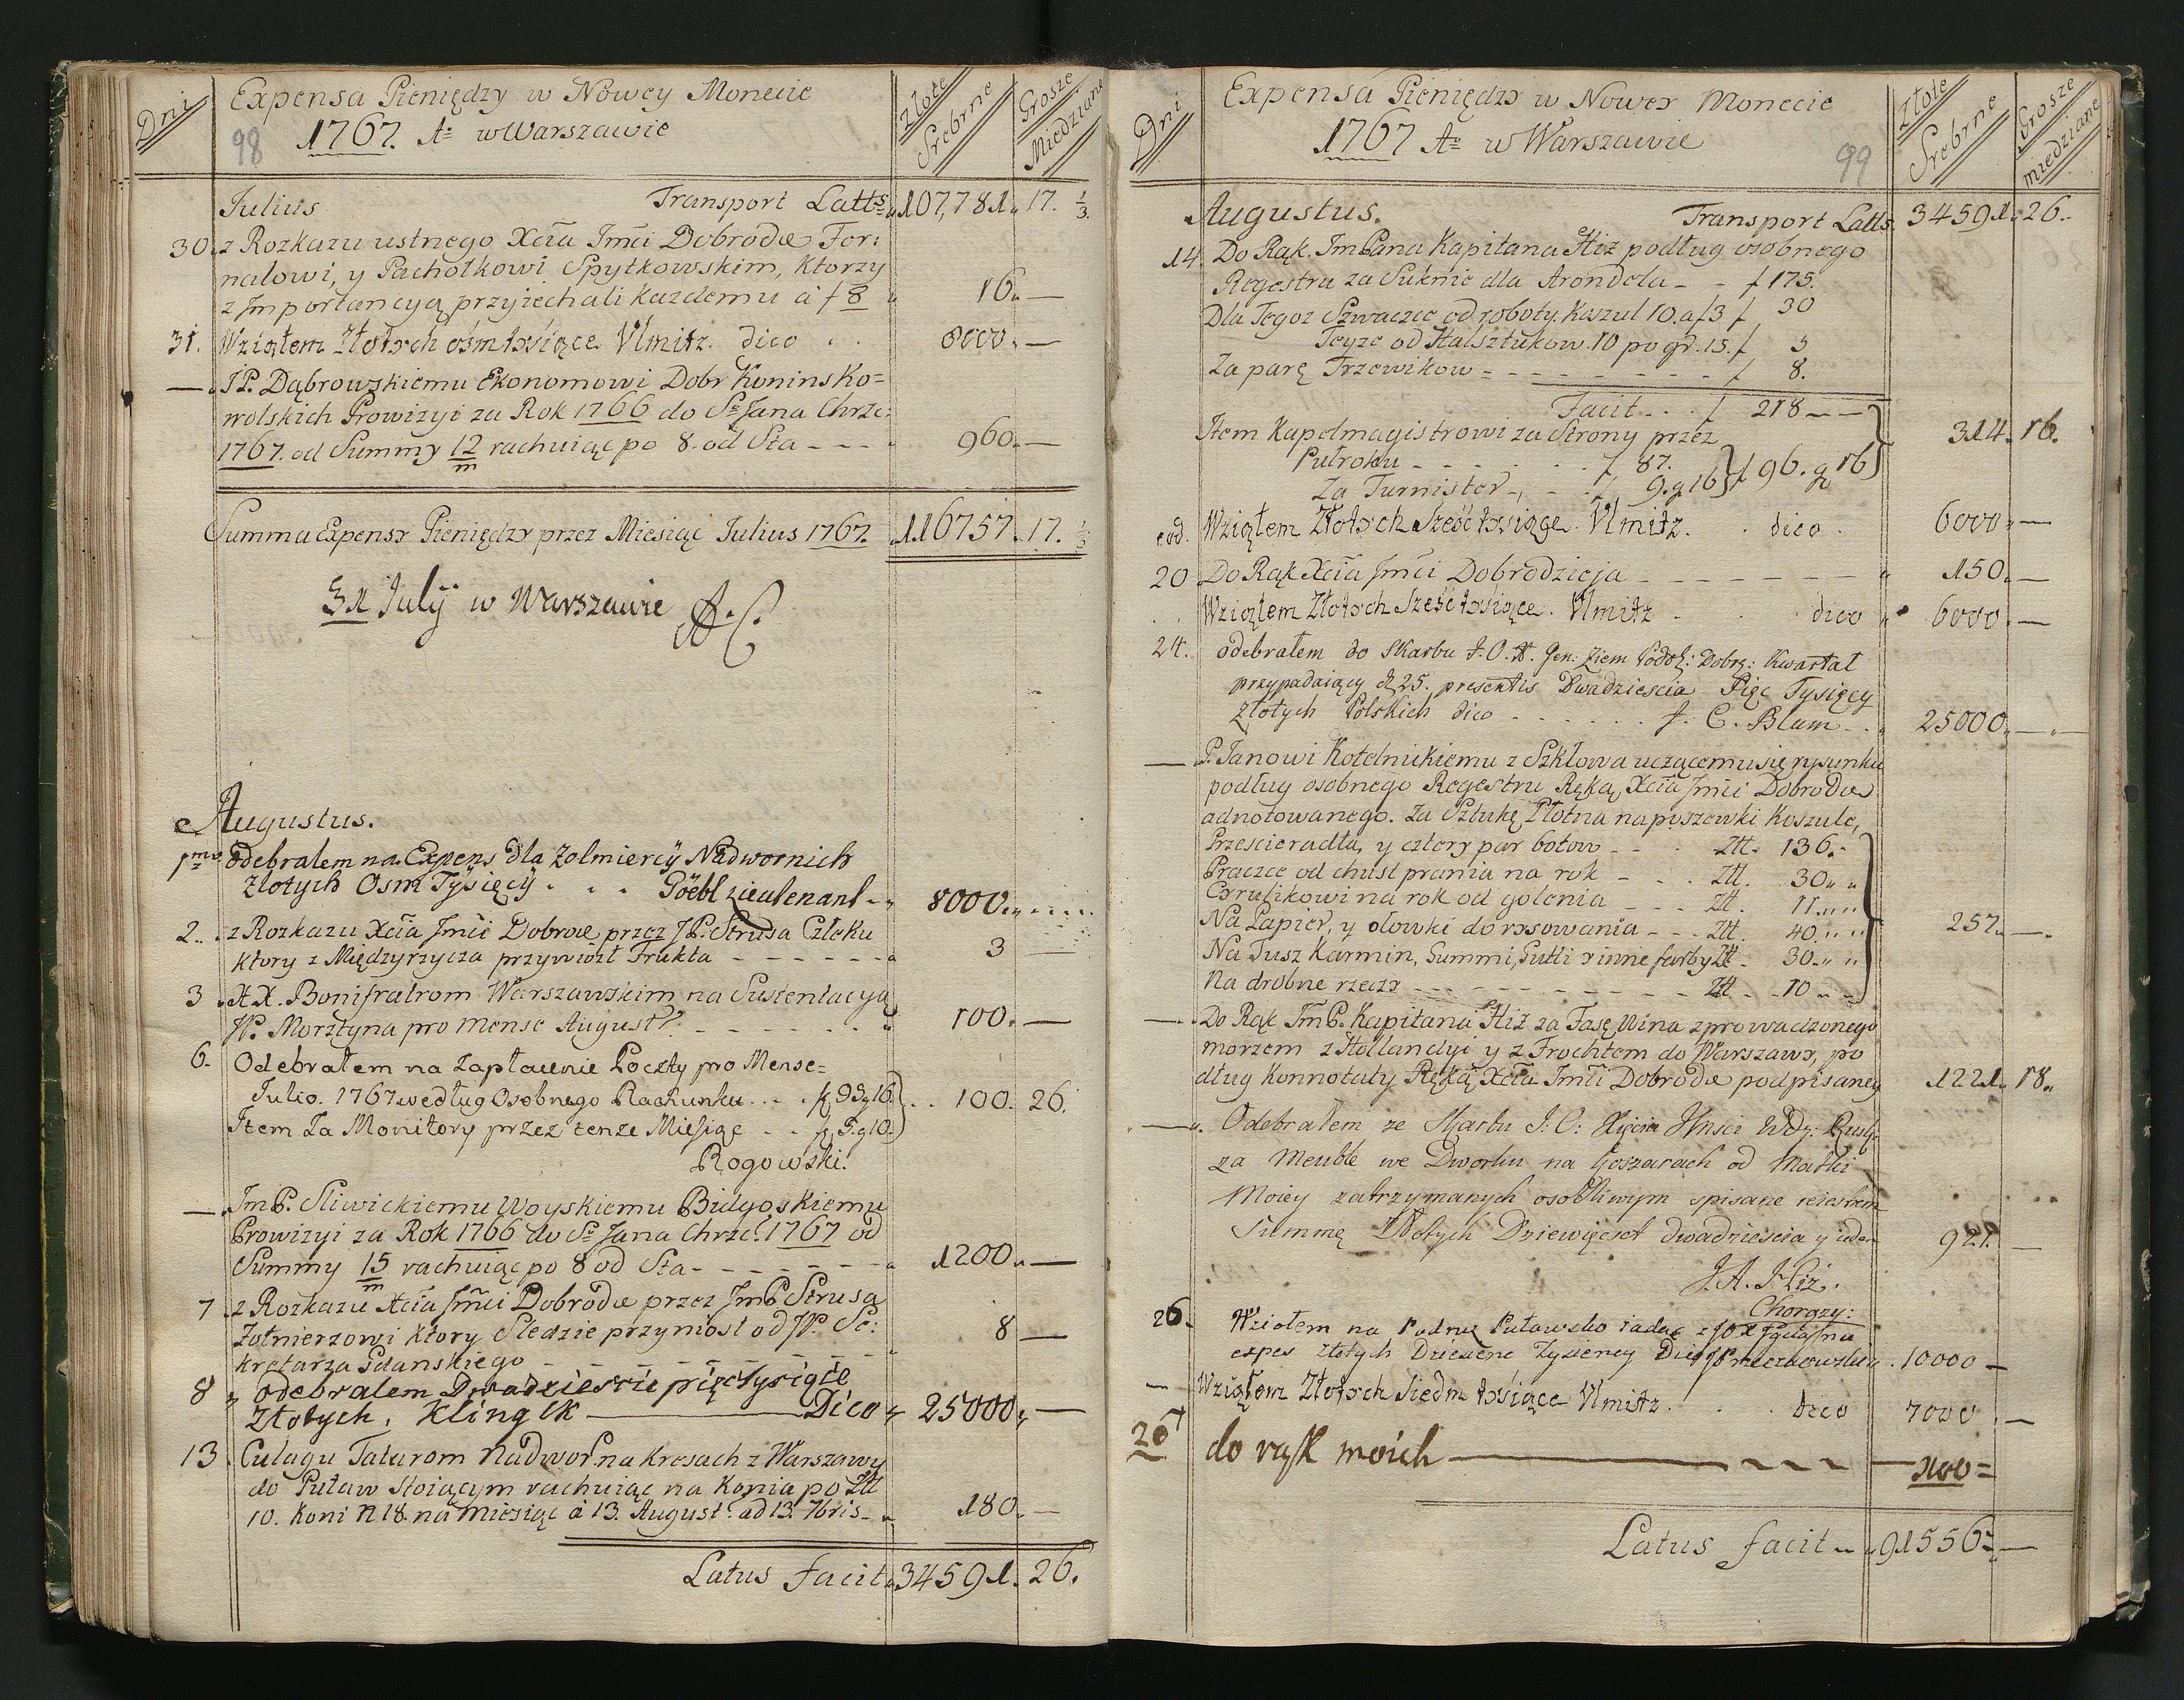 Dni
Expensa Pieniędzy w Nowey Monecie
98 1767. Ao w Warszawie
Złote Srebrne
Grosze Miedziane
Julius Transport Latts 107,781. 17. 1/3.
30. z Rozkazu ustnego Xcia Jmći Dobrodz. For:
nalowi, y Pachołkowi Spytkowskim, Ktorzy
z Importancyą przyiechali każdemu à f 8 16. —
31. Wziąłem Złotych ośm tysięce Ulmitz. dico 8000. —
— JP. Dąbrowskiemu Ekonomowi Dobr Koninsko=
wolskich Prowizyi za Rok 1766 do Sgo Jana Chrzc:
1767. od Summy 12/m rachuiąc po 8. od Sta - - - 960. —
Summa Expensy Pieniędzy przez Miesiąc Julius 1767. 116757. 17. 1/3
31 July w Warszawie A.C.
Augustus.
1ma odebralem na Expens dla Zolmiercÿ Nadwornich
Zlotych Osm Tÿsięcÿ . . . Göebl Lieutenant 8000.
2. z Rozkazu Xcia Jmći Dobrodz przez JP. Strusa Człeku
ktory z Międzyrzycza przywiozł Frukta - - - 3 —
3. XX. Bonifratrom Warszawskim na Sustentacyą
JP. Morsztyna pro Mense Augusti - - - 100. —
6. Odebrałem na Zapłacenie Poczty pro Mense=
Julio. 1767 według Osobnego Rachunku . . . f 95 g 16.
Item Za Monitory przez tenże Miesiąc . . f 5. g 10. 100. 26.
Rogowski.
— JmP. Sliwickiemu Woyskiemu Bidgoskiemu
Prowizyi za Rok 1766 do Sgo Jana Chrzc: 1767 od
Summy 15/m rachuiąc po 8 od Sta - - - 1200. —
7. z Rozkazu Xcia Jmći Dobrodz przez JmP Strusa
Żołnierzowi ktory Sledzie przyniosł od JP. Se:
kretarza Gdanskiego - - - 8 —
8 odebralem Dwadziescie pięc tysięcie
Złotych, Klingsk — Dico 25000. —
13. Culagu Tatarom Nadwor. na Kresach z Warszawy
do Puław stoiącym rachuiąc na Konia po Złł
10. Koni N 18. na Miesiąc à 13. August: ad 13. 7bris - 180. —
Latus facit 34591. 26.
Dni
Expensa Pieniędzy w Nowey Monecie
1767 Ao w Warszawie 99
Złote Srebrne
Grosze miedziane
Augustus. Transport Latts. 34591. 26.
14. Do Rąk JmPana Kapitana Hiż podług osobnego
Regestru za Suknie dla Arondela - - f 175.
Dla Tegoż Szwaczce od roboty. Koszul 10. a f 3 f 30
Teyże od Halsztukow. 10 po gr. 15. f 5
Za parę Trzewikow - - - f 8.
Facit . . f 218 —
Item Kapelmagistrowi za Strony przez
Pułroku - - - f 87.
Za Turnister - - f 9. g 16 f 96. g 16 314. 16.
eod. Wziąłem Złotych Sześć tysięce. Ulmitz. dico 6000 —
20 Do Rąk Xcia Jmći Dobrodzieja - - - 150. —
Wziąłem Złotych Sześć tysięce. Ulmitz . dico 6000. —
24. odebrałem do Skarbu J.O.X. Gen: Ziem Podol: Dobrz: Kwartał
przypadaiący d 25. presentis Dwadziescia Pięc Tysięcy
Złotych Polskich dico . . . . . J. C. Blum. 25000. —
— P. Janowi Kotelnickiemu z Szkłowa uczącemu się rysunku
podług osobnego Regestru Ręką Xcia Jmći Dobrodz
adnotowanego. Za Sztukę Płotna na poszewki Koszule,
Przescieradła, y cztery par botow - - Złł. 136. -
Praczce od chust prania na rok - - . Złł. 30
Cyrulikowi na rok od golenia - - - Zł. 11
Na Papier, y ołowki do rysowania - - - Złł. 40
Na Tusz Karmin, Gummi, Gutti y inne farby Złł. 30
Na drobne rzeczy - - - Złł. 10 257. —
— Do Rąk JmP. Kapitana Hiż za Fasę Wina zprowadzonego
morzem z Hollandyi y z Frochtem do Warszawy, po
dług Konnotaty Ręką Xcia Jmći Dobrodz podpisaney 1221. 18.
— Odebrałem ze Skarbu J: O: Xięcia JMsci Wdy: Rusk:
za Meuble we Dworku na Koszarach od Matki
Moiey zatrzymanych osobliwym spisane reiestrem
Summę Złłotych Dziewięcset dwadziescia y ieden 921. —
J.A. Hiż.
Chorązy:
26. Wziołem na Podruz Puławsko iadąc z JO X
expes złotych Dziesienc Tysiency 10000 —
— Wziąłem Złotych Siedm tysięce Ulmitz . . . dico 7000 —
26 do rąk moich — 1100 =
Latus facit 91556. —